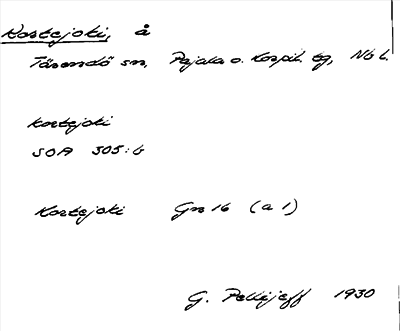 Kostejoki, å
Tärendö sn, Pajala o. Korpil. tg, Nb l.
Kostejoki
SOA 305:6
Kostejoki Gn 16 (a 1)
G. Pellijeff 1930